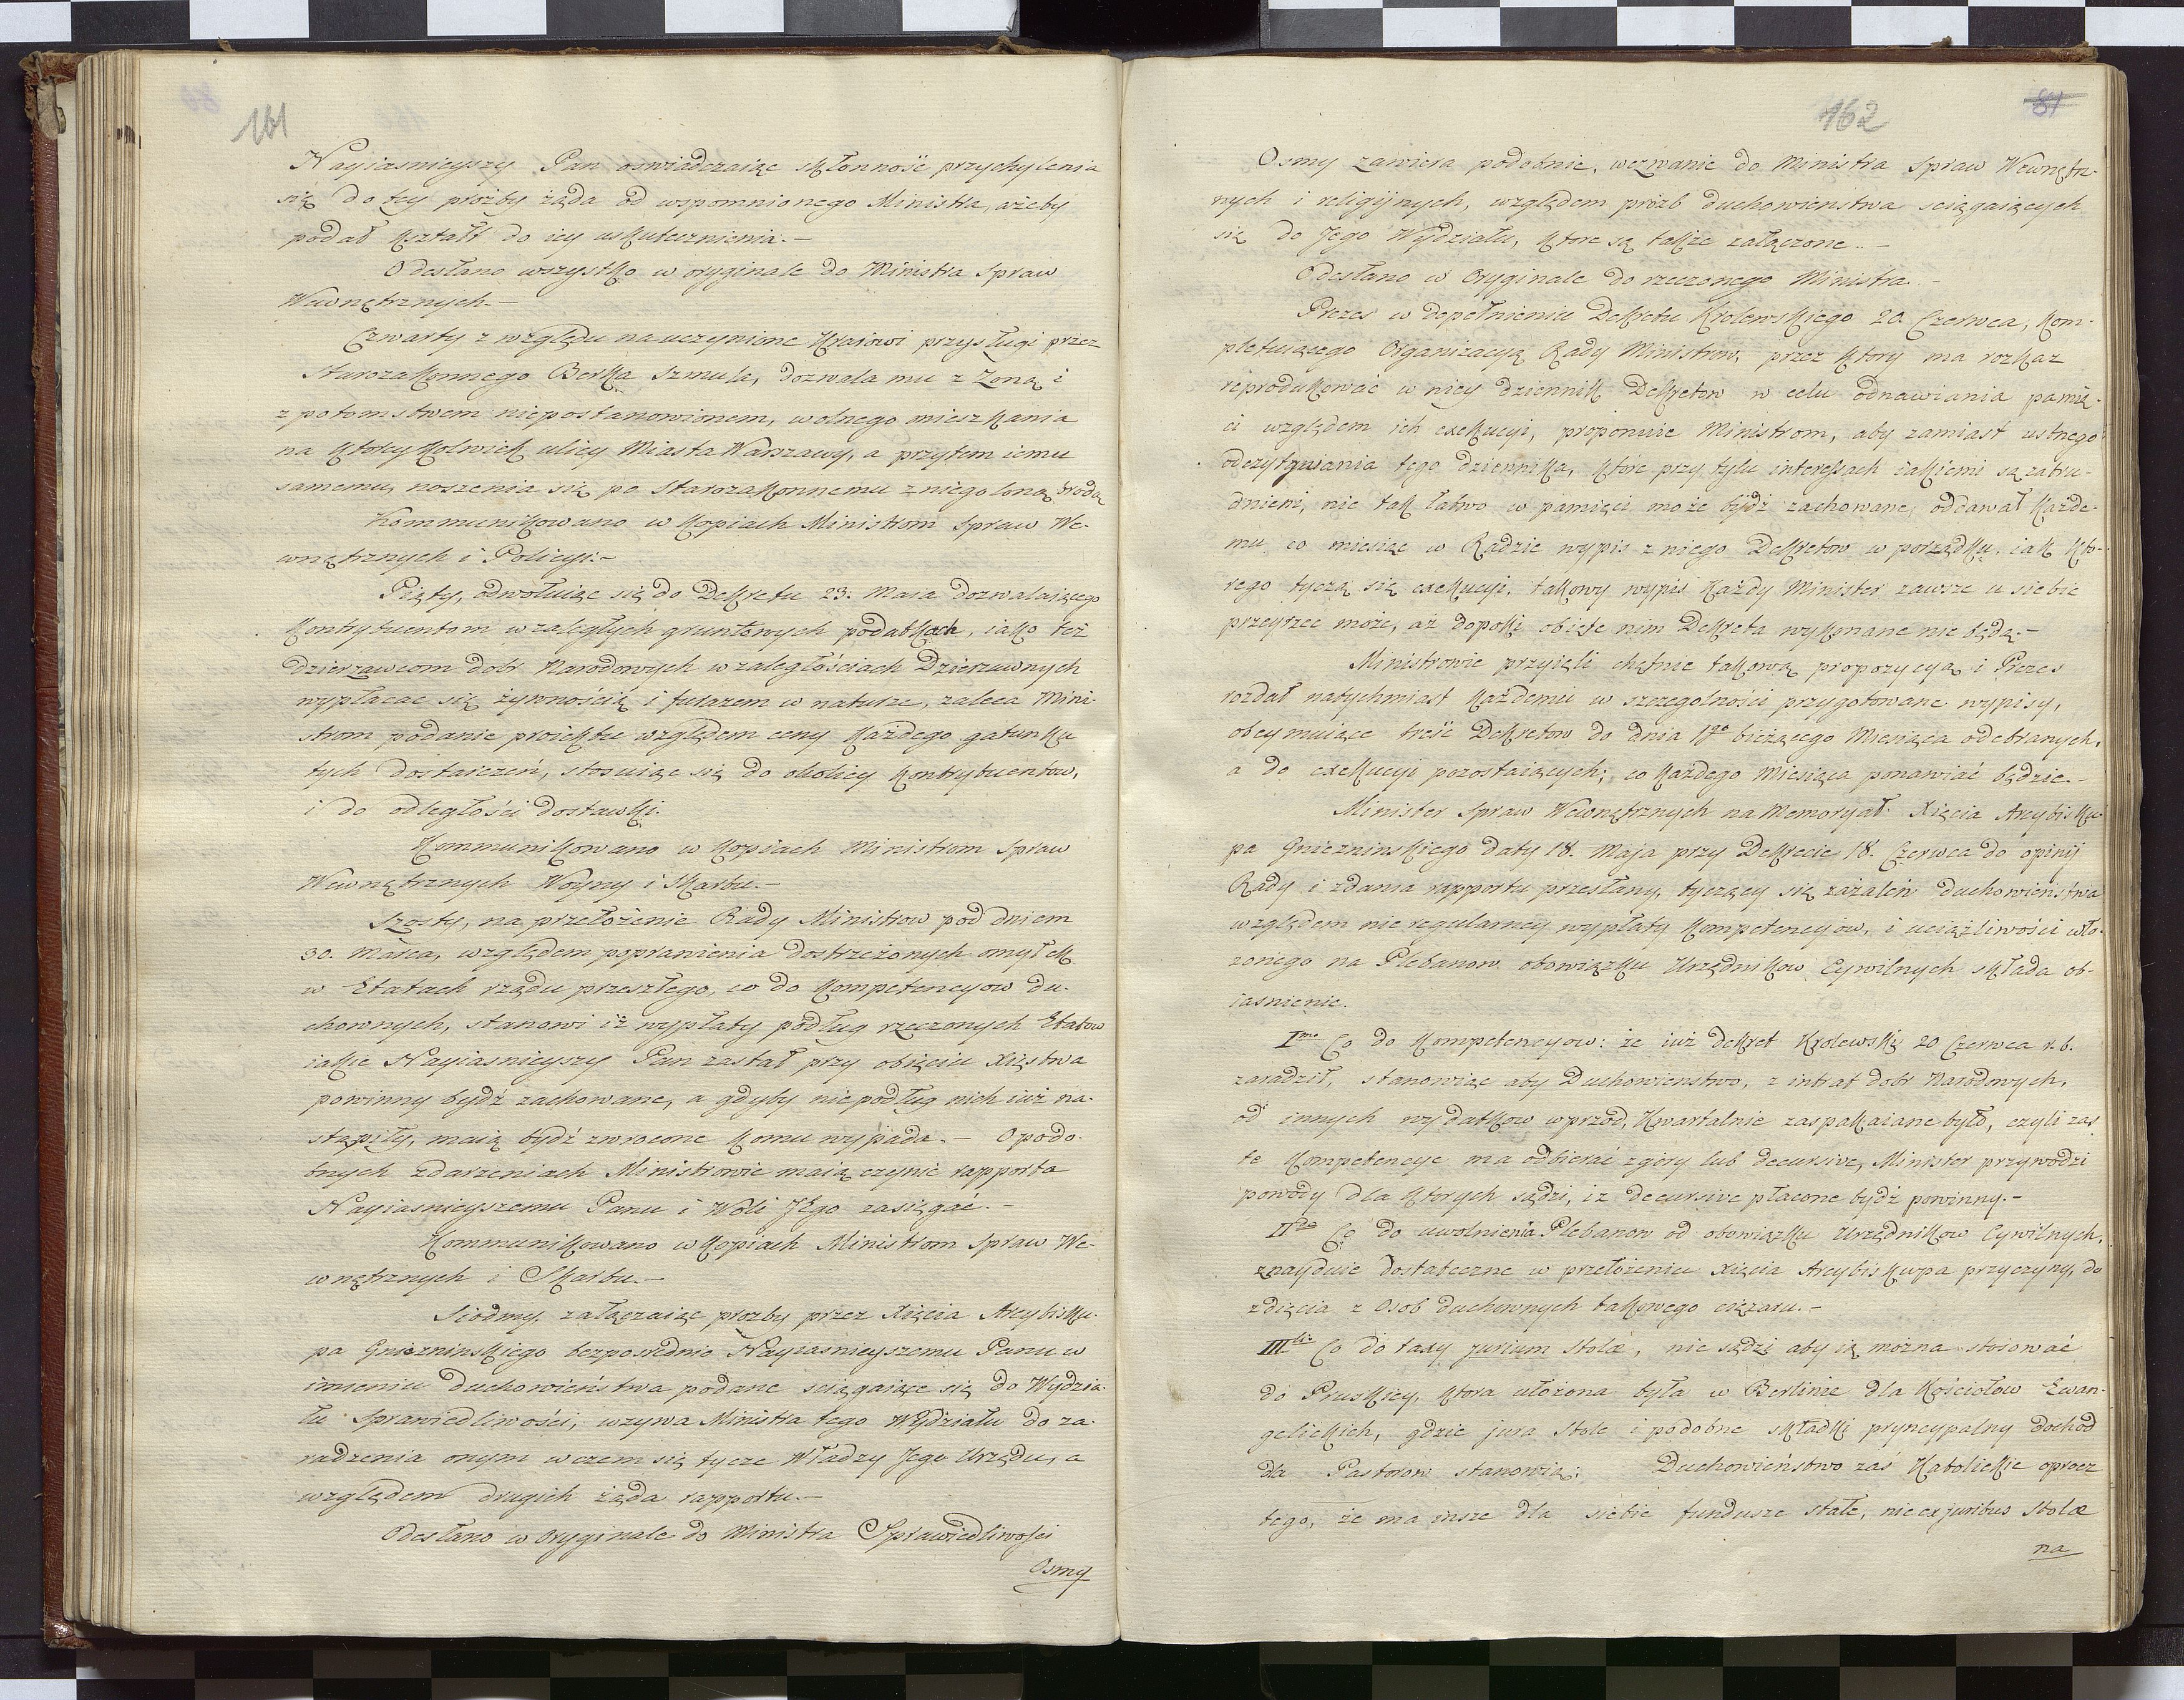 161
Nayiasnieyszy Pan oswiadczaiąc skłonność przychylenia
się do tey proźby żąda od wspomnionego Ministra, ażeby
podał kształt do iey uskutecznienia.—
Odesłano wszystko w oryginale do Ministra Spraw
Wewnętrznych.—
Czwarty z względu na uczynione Kraiowi przysługi przez
Starozakonnego Berka Szmula, dozwala mu z Zoną i
z potomstwem niepostanowionem, wolnego mieszkania
na ktoreykolwiek ulicy Miasta Warszawy, a przytem iemu
samemu, noszenia się po Starozakonnemu z niegoloną brodą
Kommunikowano w Kopiach Ministrom Spraw We-
wnętrznych i Policyi:—
Piąty, odwołuiąc się do Dekretu 23. Maia dozwalaiącego
Kontrybuentom w zaległych gruntowych podatkach, iako też
Dzierzawcom dobr Narodowych w zaległościach Dzierzawnych
wypłacac się żywnością i furazem w naturze, zaleca Mini-
strom podanie proiektu względem ceny każdego gatunku
tych dostarczeń, stosuiąc się do okolicy Kontrybuentow,
i do odległości dostawki.
Kommunikowano w Kopiach Ministrom Spraw
Wewnętrznych Woyny i Skarbu.—
Szosty, na przełożenie Rady Ministrow pod dniem
30. Marca, względem poprawienia dostrzeżonych omyłek
w Etatach rządu przeszłego, co do Kompetencyow du-
chownych, stanowi iż wypłaty podług rzeczonych Etatow
iakie Nayiasnieyszy Pan zastał przy obięciu Xięstwa
powinny bydź zachowane, a gdyby nie podług nich iuż na-
stąpiły, maią bydź zwrocone komu wypada.— O podo-
bnych zdarzeniach Ministrowie maią czynić rapporta
Nayiasnieyszemu Panu i Woli JEgo zasięgać.—
Kommunikowano w Kopiach Ministrom Spraw We-
wnętrznych i Skarbu.—
Siodmy, załączaiąc prozby przez Xięcia Arcybisku-
pa Gniezninskiego bezposrednio Nayiasnieyszemu Panu w
imieniu Duchowieństwa podane sciągaiące się do Wydzia-
łu Sprawiedliwości, wzywa Ministra tego Wydziału do za-
radzenia onym w czem się tycze Władzy Jego Urzędu, a
względem drugich żąda rapportu.—
Odesłano w Oryginale do Ministra Sprawiedliwości
Osmy
162
81
Osmy zawiera podobnie, wezwanie do Ministra Spraw Wewnętrz-
nych i religijnych, względem prozb duchowieństwa sciągaiących
się do Jego Wydziału, ktore są także załączone.—
Odesłano w Oryginale do rzeczonego Ministra.—
Prezes w dopełnieniu Dekretu Krolewskiego 20 Czerwca, kom-
pletuiącego Organizacyą Rady Ministrow, przez ktory ma rozkaz
reprodukować w niey dziennik Dekretow w celu odnawiania pamię-
ci względem ich exekucyi, proponuie Ministrom, aby zamiast ustnego
odczytywania tego dziennika, ktore przy tylu interessach iakiemi są zatru-
dnieni, nie tak łatwo w pamięci może bydź zachowane, oddawał każde-
mu co miesiąc w Radzie wypis z niego Dekretow w porządku, iak kto-
rego tyczą się exekucyi, takowy wypis każdy Minister zawsze u siebie
przeyrzec może, aż dopoki obięte nim Dekreta wykonane nie będą.—
Ministrowie przyięli chętnie takową propozycyą i Prezes
rozdał natychmiast każdemu w szczegolności przygotowane wypisy,
obeymuiące treść Dekretow do dnia 1go bieżącego Miesiąca odebranych,
a do exekucyi pozostaiących; co każdego Miesiąca ponawiać będzie.—
Minister Spraw Wewnętrznych na Memoryał Xięcia Arcybisku-
pa Gnieznińskiego daty 18. Maja przy Dekrecie 18. Czerwca do opinij
Rady i zdania rapportu przesłany, tyczący się zażaleń Duchowieństwa
względem nie regularney wypłaty Kompetencyow, i uciążliwości wło-
żonego na Plebanow obowiązku Urzędnikow Cywilnych składa ob-
iasnienie.
Imo Co do Kompetencyow: że iuż dekret Krolewski 20 Czerwca r. b.
zaradził, stanowiąc aby Duchowienstwo, z intrat dobr Narodowych,
od innych wydatkow wprzod, Kwartalnie zaspakaiane było, czyli zas
te Kompetencye ma odbierać z gory lub decursive, Minister przywodzi
powody dla ktorych sądzi, iz decursive płacone bydź powinny.—
IIdo Co do uwolnienia Plebanow od obowiązku Urzędnikow Cywilnych,
znayduie dostateczne w przełożeniu Xięcia Arcybiskupa przyczyny, do
zdięcia z Osob duchownych takowego ciężaru.—
IIItio Co do taxy jurium Stolæ, nie sądzi aby ią można stosować
do Pruskiey, ktora ułożona była w Berlinie dla Kościołow Ewan-
gelickich, gdzie jura Stole i podobne składki pryncypalny dochod
dla Pastorow stanowią; Duchowieństwo zaś Katolickie oprocz
tego, że ma insze dla siebie fundusze stałe, nie ex juribus Stolæ
na